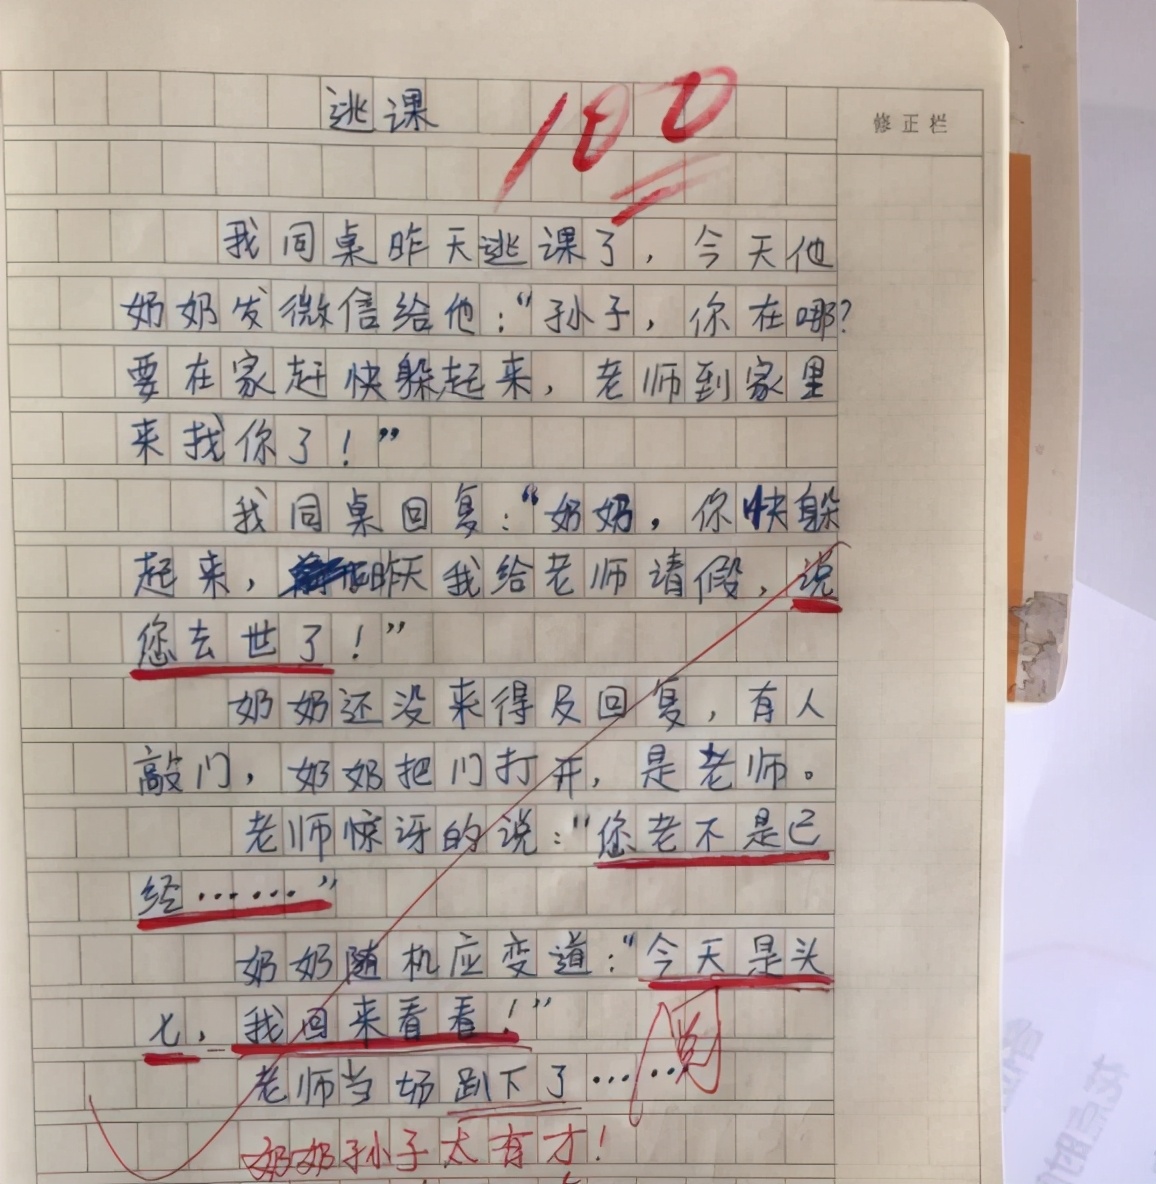 逃课
100
修正栏
我同桌昨天逃课了，今天他
奶奶发微信给他："孙子，你在哪？
要在家赶快躲起来，老师到家里
来找你了！"
我同桌回复："奶奶，你快躲
起来，昨天我给老师请假，说
您去世了！"
奶奶还没来得及回复，有人
敲门，奶奶把门打开，是老师。
老师惊讶的说："您老不是已
经……"
奶奶随机应变道："今天是头
七，我回来看看！"
老师当场趴下了……
奶奶孙子太有才！